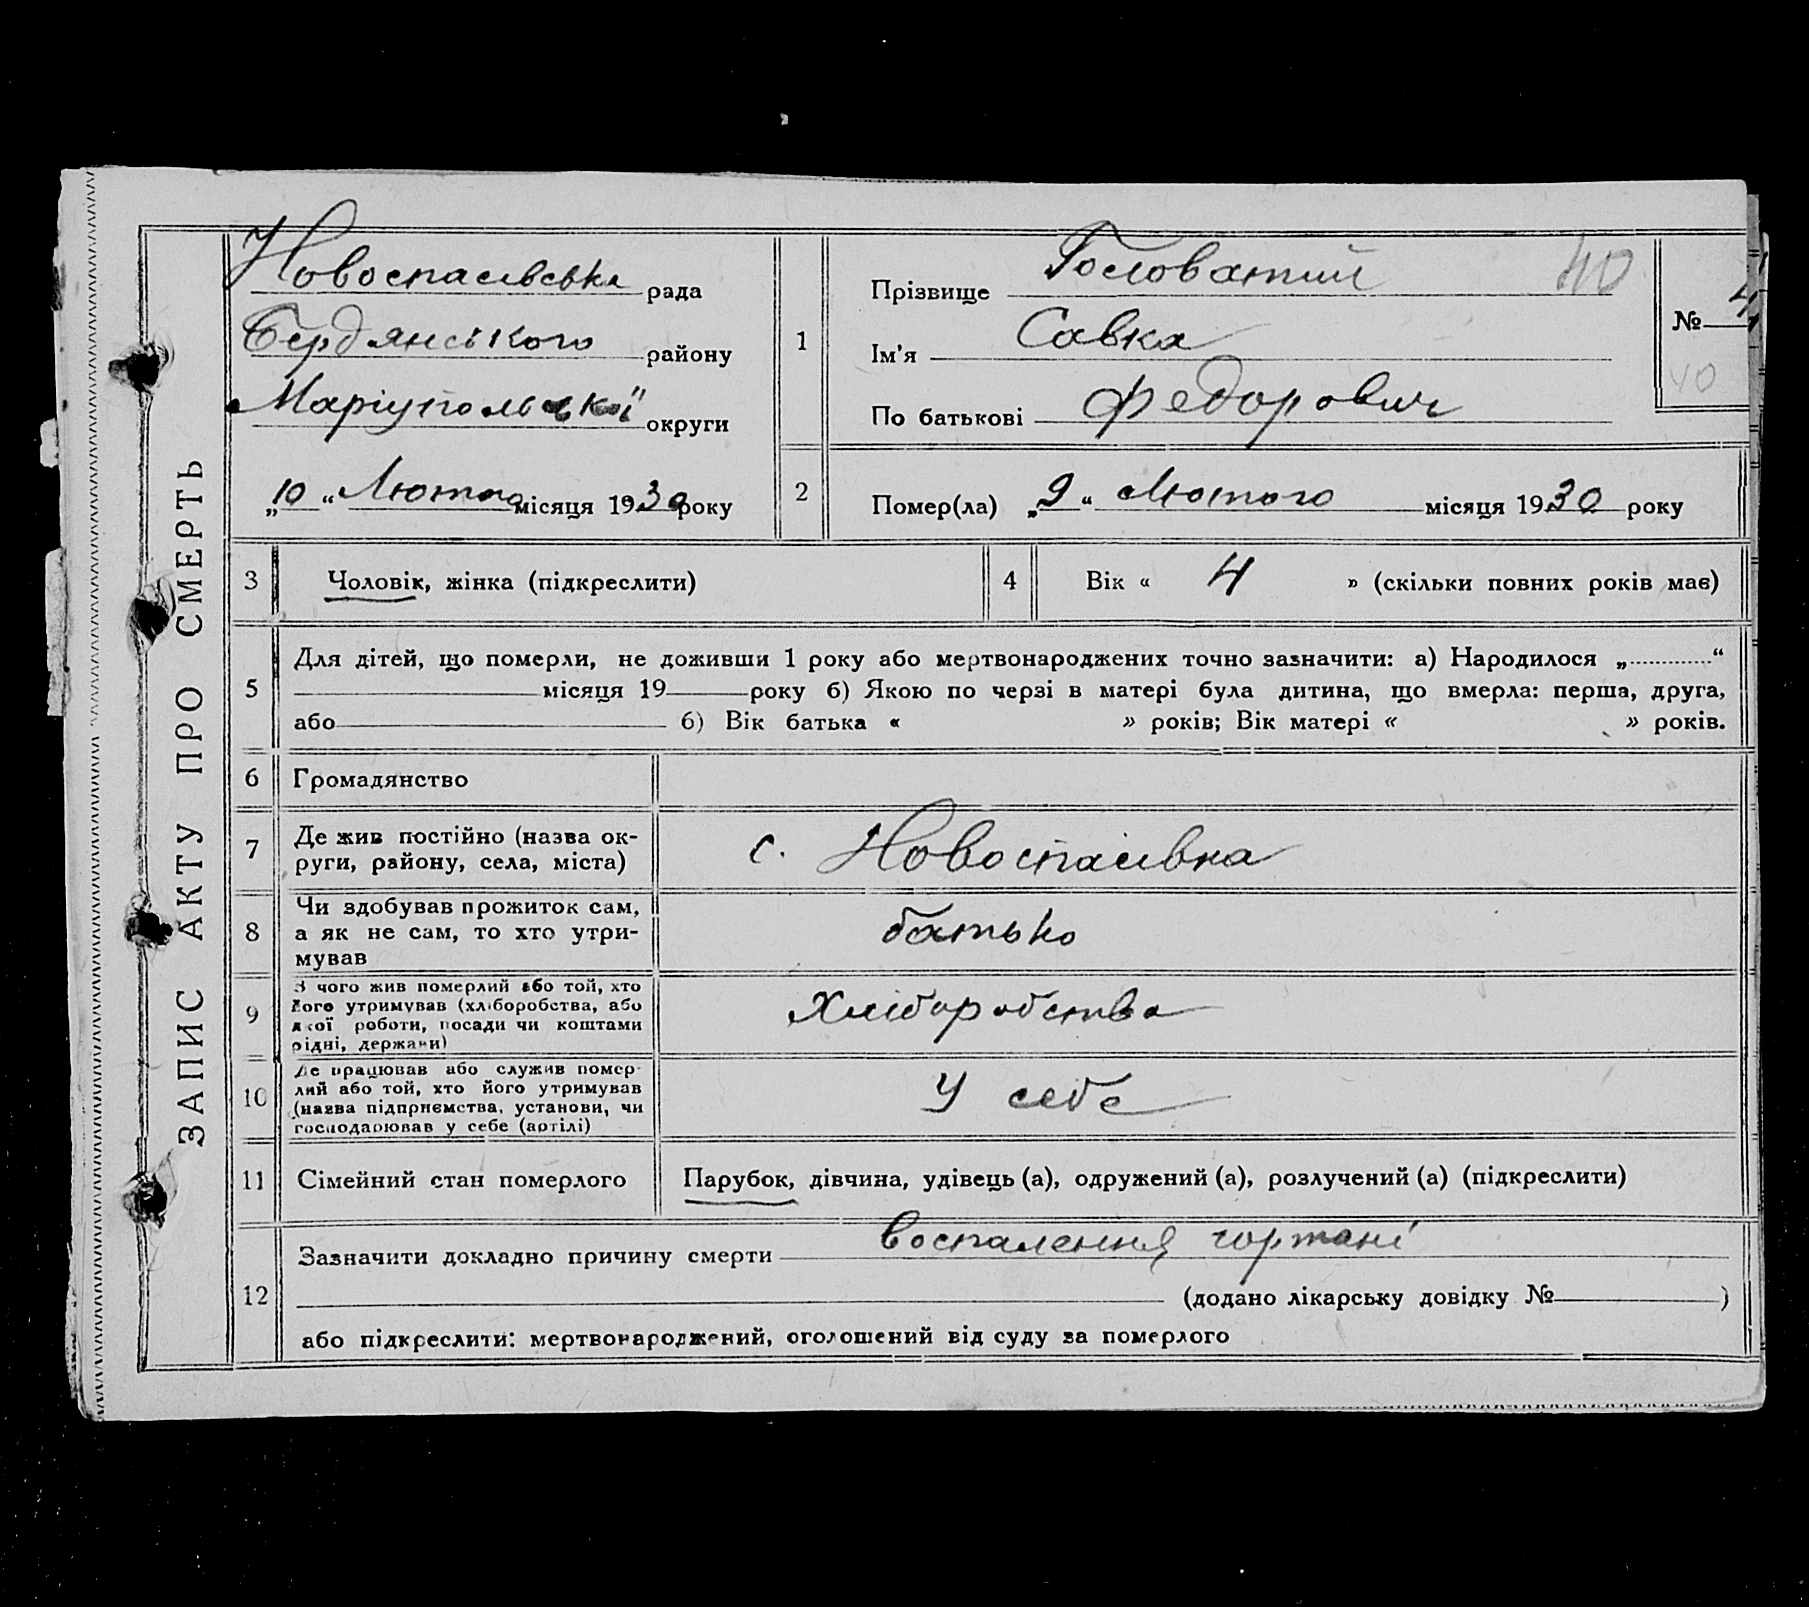 ЗАПИС АКТУ ПРО СМЕРТЬ
Новоспасівська рада
Бердянського району
Маріупольської округи
„10“ Лютого місяця 1930 року
1
Прізвище Головатий
40
Ім'я Савка
По батькові Федорович
№ 4
40
2
Помер(ла) „9“ Лютого місяця 1930 року
3 Чоловік, жінка (підкреслити)
4 Вік « 4 » (скільки повних років має)
5
Для дітей, що померли, не доживши 1 року або мертвонароджених точно зазначити: а) Народилося „ “
місяця 19 року б) Якою по черзі в матері була дитина, що вмерла: перша, друга,
або б) Вік батька « » років; Вік матері « » років.
6 Громадянство
7
Де жив постійно (назва ок-
руги, району, села, міста)
с. Новоспасівка
8
Чи здобував прожиток сам,
а як не сам, то хто утри-
мував
батько
9
З чого жив померлий або той, хто
його утримував (хліборобства, або
якої роботи, посади чи коштами
рідні, держави)
Хліборобства
10
Де працював або служив помер-
лий або той, хто його утримував
(назва підприємства, установи, чи
господарював у себе (артілі)
У себе
11 Сімейний стан померлого
Парубок, дівчина, удівець (а), одружений (а), розлучений (а) (підкреслити)
12
Зазначити докладно причину смерти воспалення гортані
(додано лікарську довідку № )
або підкреслити: мертвонароджений, оголошений від суду за померлого